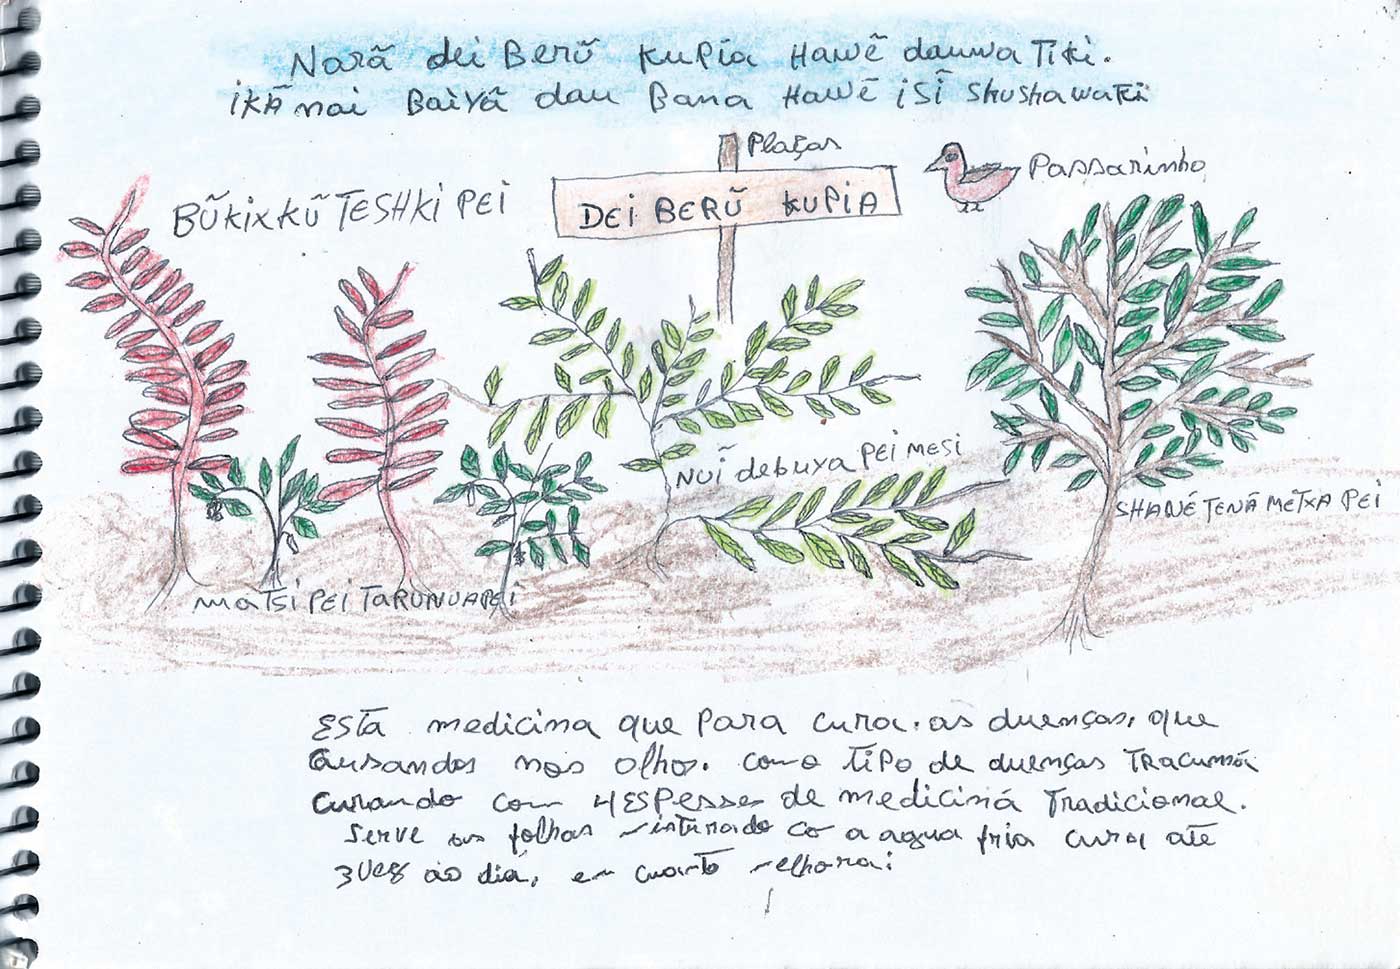 Narã dei Berũ Kupia Hawẽ dauwa Tiki.
iKÃ nai Baiyã dau Bana Hawẽ isĩ shushawaTki
Plaças
Passarinho
BŨKiXKŨ TESHKi PEi
DEi BERŨ KUPiA
NUĨ debuya PEi MESi
SHANÊ TENÃ METXA PEi
MATSi PEi TARUNUAPEi
ESTA medicina que Para cura. as duenças, que
causandos nos olhos. como tipo de duenças TRACUMÁ
curando com 4 ESPESSES de medicina Tradicional.
Serve as folhas misturado co a agua fria cura, até
3 vez ao dia, en cuanto melhora: